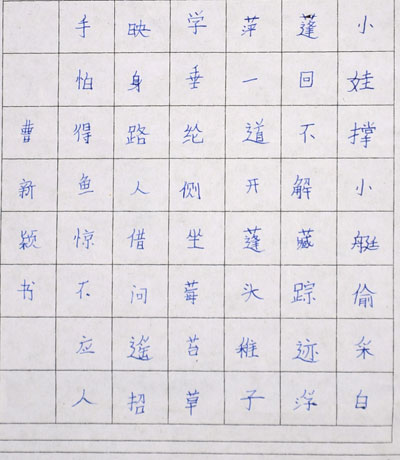 小娃撑小艇偷采白
蓬回不解藏踪迹浮
萍一道开蓬头稚子
学垂纶侧坐莓苔草
映身路人借问遥招
手怕得鱼惊不应人
曹新颖书